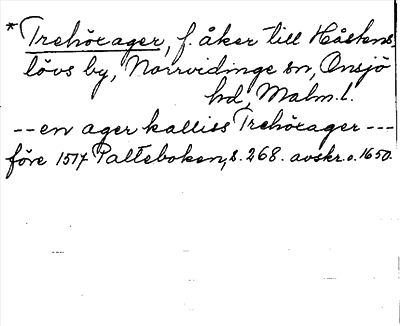 *Trehöxager, f. åker till Håstens-
lövs by, Norrvidinge sn, Onsjö
hd, Malm. l.
-- en ager kalliss Trehöxager ---
före 1517 Palteboken, s. 268. avskr. o. 1650.